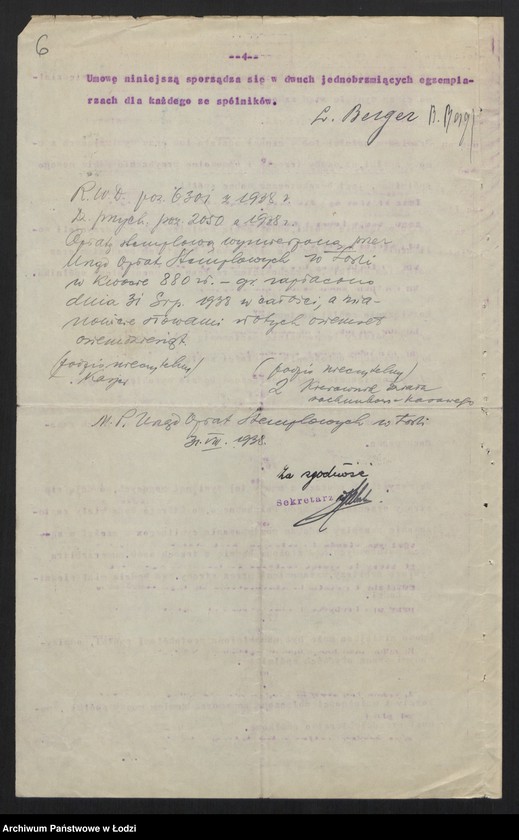 6
--4--
Umowę niniejszą sporządza się w dwuch jednobrzmiących egzempla-
rzach dla każdego ze spólników.
L. Berger B. Berg
R.W.D. poz. 6301 z 1938 r.
Dz. przych. poz. 2050 z 1938 r.
Opłatę stemplową wymierzoną przez
Urząd Opłat Stemplowych w Łodzi
w kwocie 880 zł. – gr zapłacono
dnia 31 Srp. 1938 w całości, a mia-
nowicie słowami złotych osiemset
osiemdziesiąt
(podpis nieczytelny) (podpis nieczytelny)
Kasjer Kierownik działu
rachunkowo-kasowego
M.P. Urząd Opłat Stemplowych w Łodzi
31.VIII.1938.
Za zgodność
Sekretarz
Archiwum Państwowe w Łodzi